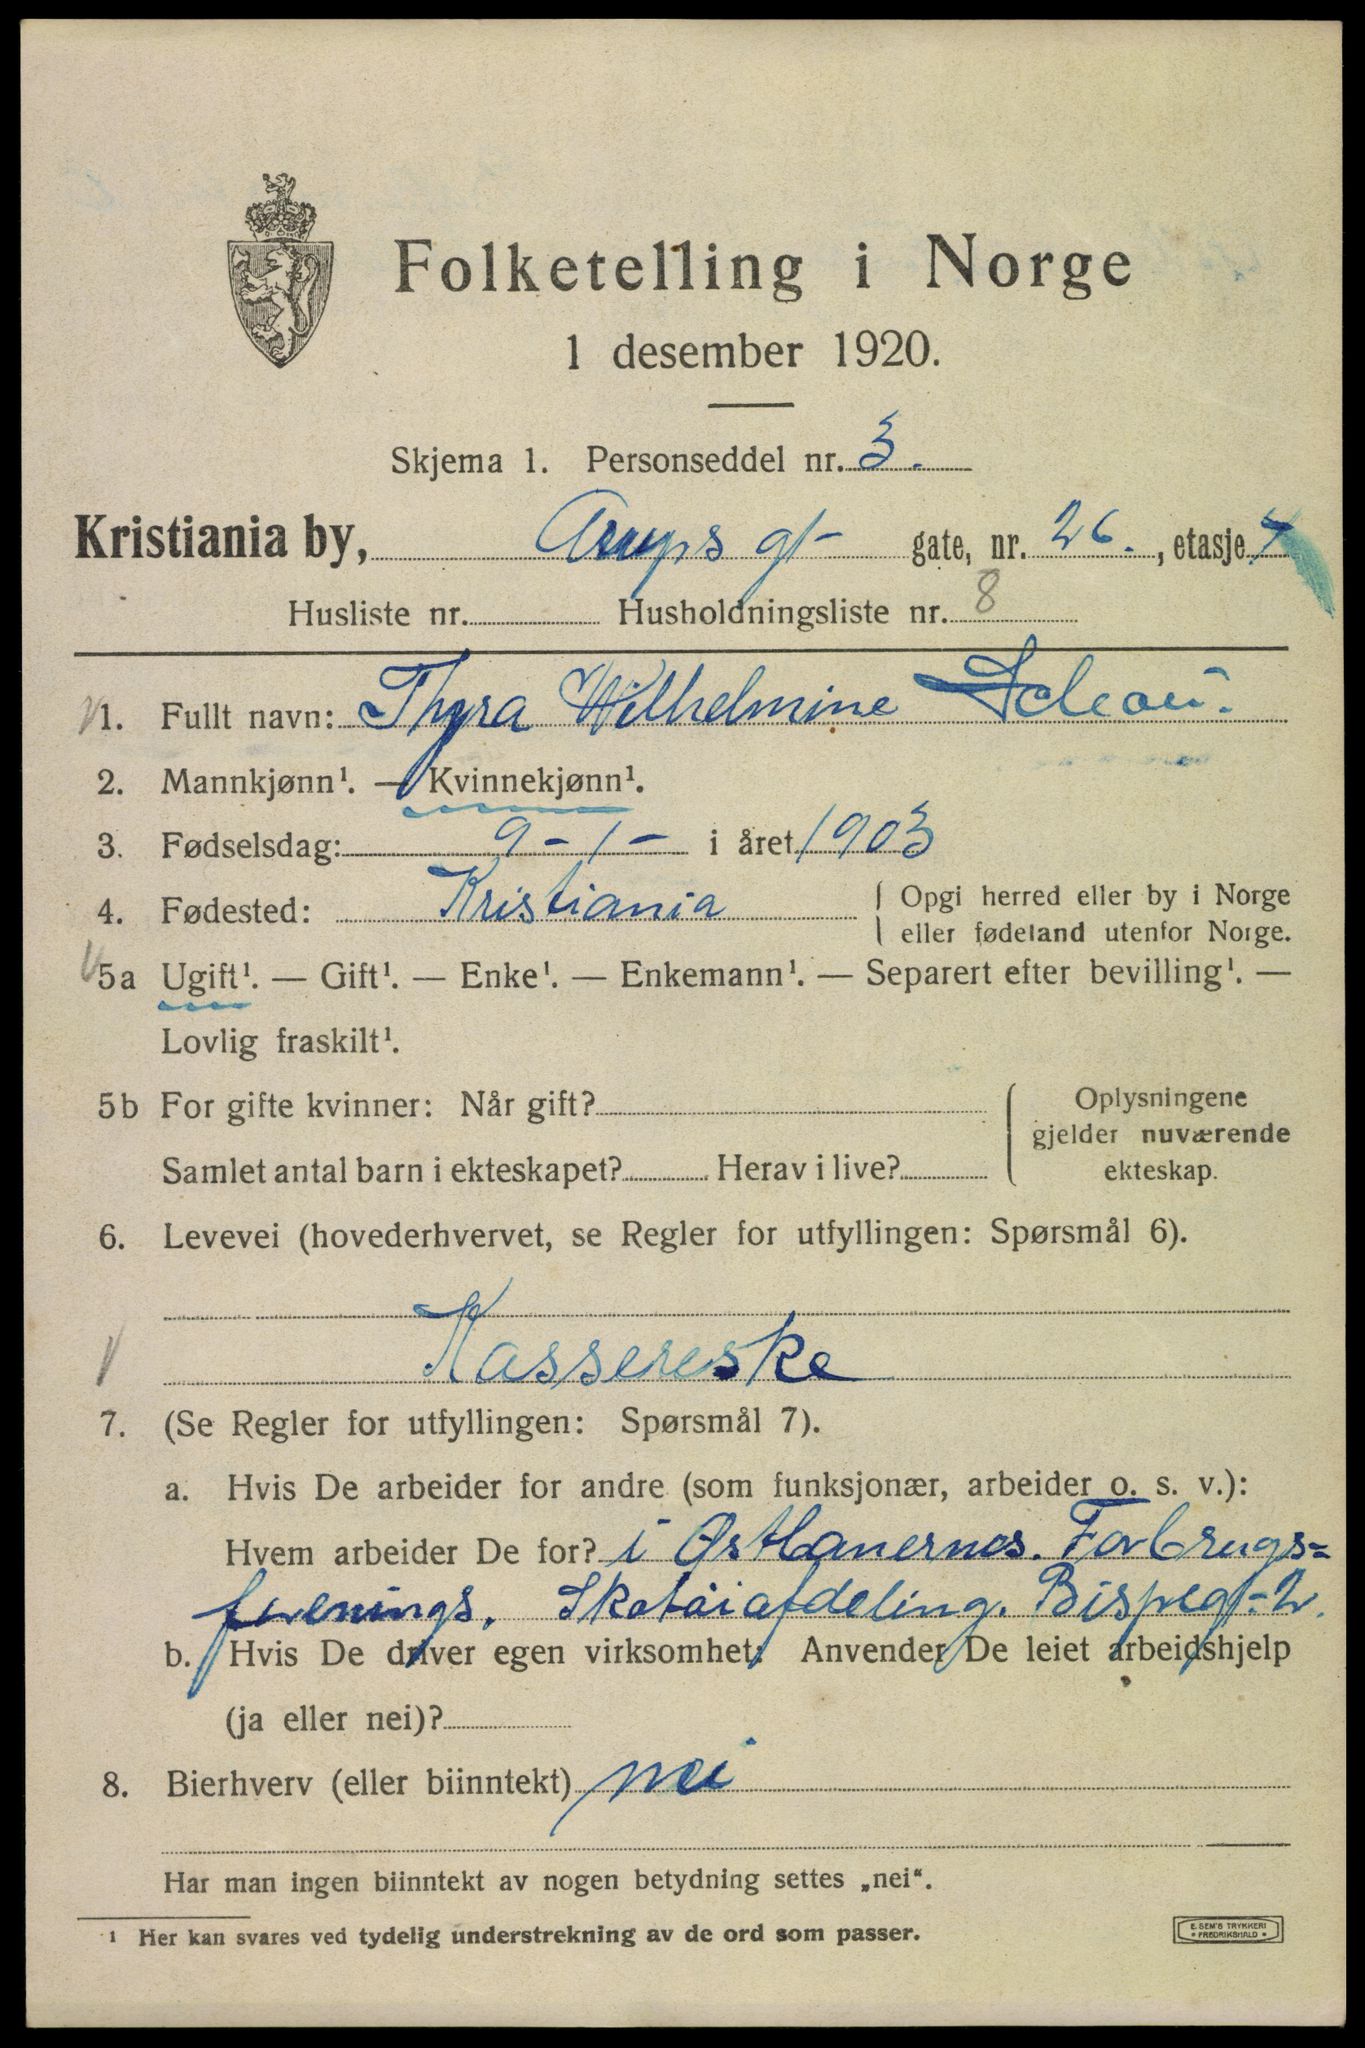 Folketelling i Norge
1 desember 1920.
Skjema 1. Personseddel nr. 3.
Kristiania by, Arups gt- gate, nr. 26., etasje 4
Husliste nr. Husholdningsliste nr. 8
1. Fullt navn: Thyra Wilhelmine
2. Mannkjønn¹. — Kvinnekjønn¹.
3. Fødselsdag: 9 - 1 - i året 1903
4. Fødested: Kristiania { Opgi herred eller by i Norge
eller fødeland utenfor Norge.
5a Ugift¹. — Gift¹. — Enke¹. — Enkemann¹. — Separert efter bevilling¹. —
Lovlig fraskilt¹.
5b For gifte kvinner: Når gift? { Oplysningene
gjelder nuværende
Samlet antal barn i ekteskapet? Herav i live? ekteskap.
6. Levevei (hovederhvervet, se Regler for utfyllingen: Spørsmål 6).
Kassereske
7. (Se Regler for utfyllingen: Spørsmål 7).
a. Hvis De arbeider for andre (som funksjonær, arbeider o. s. v.):
Hvem arbeider De for? i Østbanernes. Forbrugs=
forenings. Skotøiafdeling. Bispegt- 2.
b. Hvis De driver egen virksomhet: Anvender De leiet arbeidshjelp
(ja eller nei)?
8. Bierhverv (eller biinntekt) nei
Har man ingen biinntekt av nogen betydning settes „nei“.
¹ Her kan svares ved tydelig understrekning av de ord som passer.
E. SEM'S TRYKKERI
• FREDRIKSHALD •